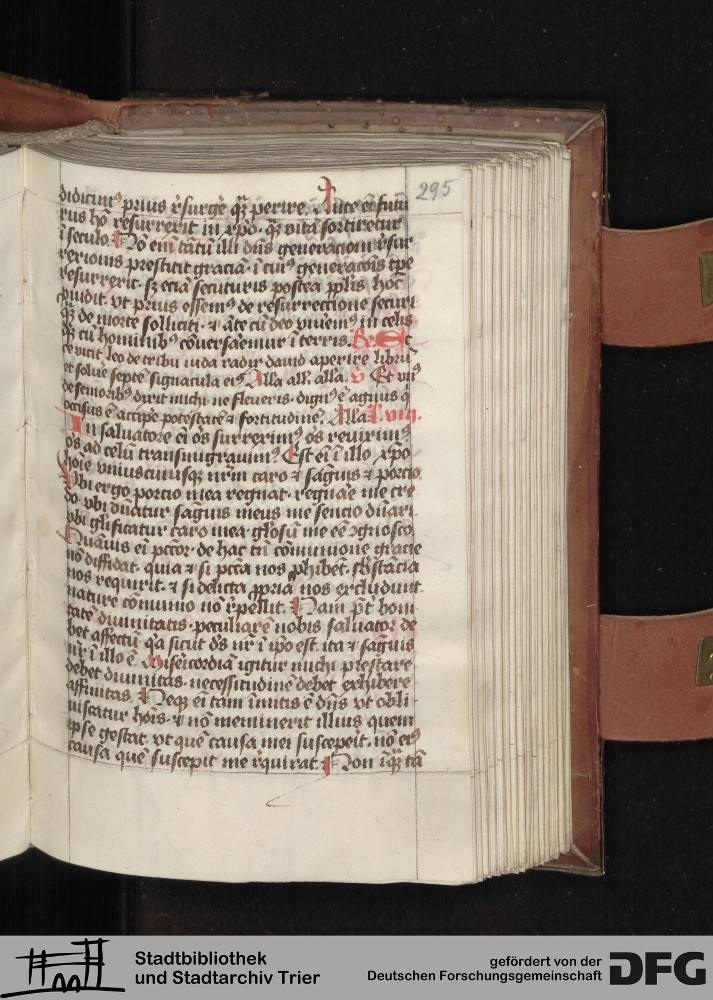 295
didicim᷒ prius r̄surgē q̄ꝫ perire. Ante em̄ futu
rus hō resurrexit in xp̄o. q̄ꝫ vitā sortiretur
ī seculo. Nō em̄ tātū illi dn̄s generacioni r̄sur
rexionis prestitit graciā. ī cui᷒ generacōis tp̄e
resurrexit. sꝫ eciā secuturis postea pp̄lis hoc
ꝓuidit. vt prius essem᷒ de resurrectione securi
q̄ꝫ de morte solliciti. ⁊ āte cū deo viuem᷒ in celis
q̄ꝫ cū hominib᷒ cōuersaremur ī terris. R̄. Ec
ce vicit leo de tribu iuda radix dauid aperire librū
et soluē septē signacula ei᷒ Alla all'. alla. v Et vn᷒
de seniorib᷒ dixit michi ne fleueris. dign᷒ ē agnus q̄
occisus ē accipē potestatē ⁊ fortitudinē. Alla L. viij.
In saluatore ei os̄ surrexim᷒ os̄ reuixim᷒
os̄ ad celū transmigrauim᷒ Est ei ī illo xp̄o
hoīe vniuscuiusqꝫ nr̄m caro ⁊ sāguis ⁊ porcio
Vbi ergo porcio mea regnat. regnare me cre
do. vbi dn̄atur sāguis meus me sencio dn̄ari.
vbi gl̄ificatur caro mea. gl̄osū me eē ↄgnosco
Quāuis ei pctōr. de hac tn̄ cōmunione gracie
nō diffidāt. quia ⁊ si pctā nos ꝓhibēt. sb̄stācia
nos requirit. ⁊ si delicta ꝓpria nos excludunt.
nature cōmunio nō r̄pellit. Nam p̄t boni
tatē diuinitatis. peculiarē nobis saluator de
bet affectū q̄a sicut ds̄ nr̄ ī ip̄o est. ita ⁊ sāguis
nr̄ ī illo ē. Misericordiā igitur michi prestare
debet diuinitas. necessitudinē debet exhibere
affinitas. Neqꝫ ei tam īmitis ē dn̄s vt obli
uiscatur hoīs. ⁊ nō meminerit illius quem
ip̄se gestat. vt quē causa mei suscepit. nō ei᷒
causa quē suscepit me r̄quirat. Non īq̄ꝫ tā
Stadtbibliothek
und Stadtarchiv Trier
gefördert von der
Deutschen Forschungsgemeinschaft DFG